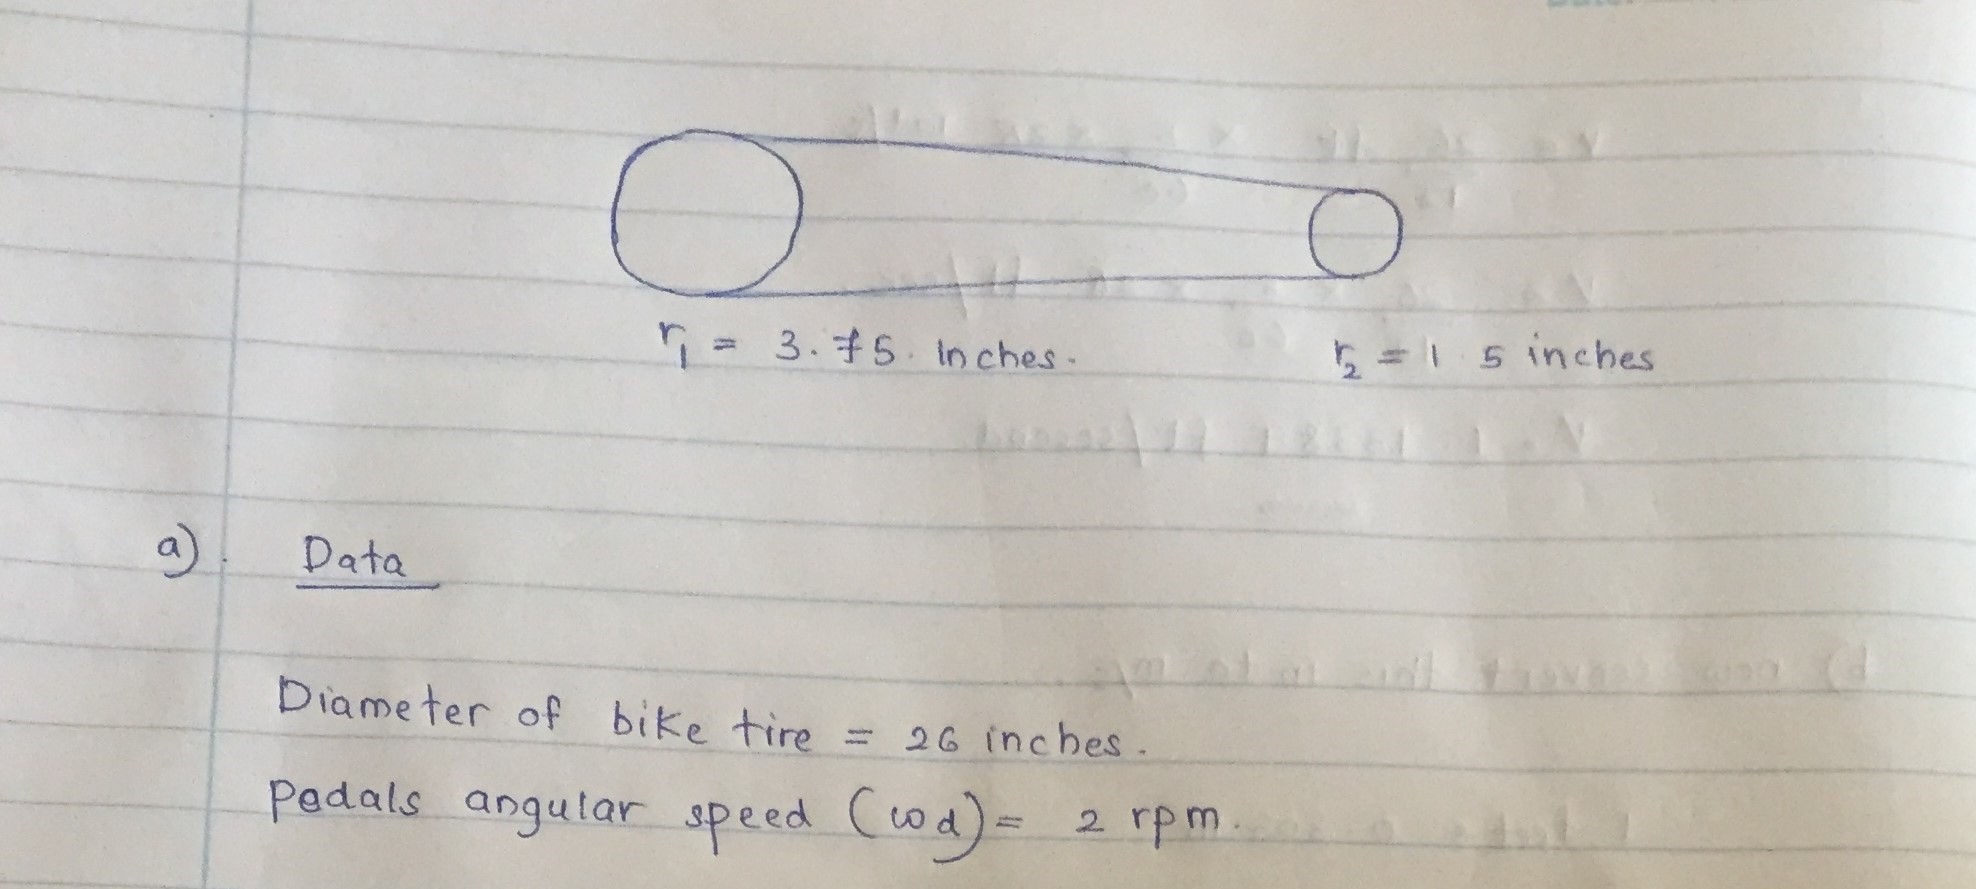 r₁ = 3.75. Inches. r₂ = 1 5 inches
a). Data
Diameter of bike tire = 26 inches.
Pedals angular speed (ωd) = 2 rpm.